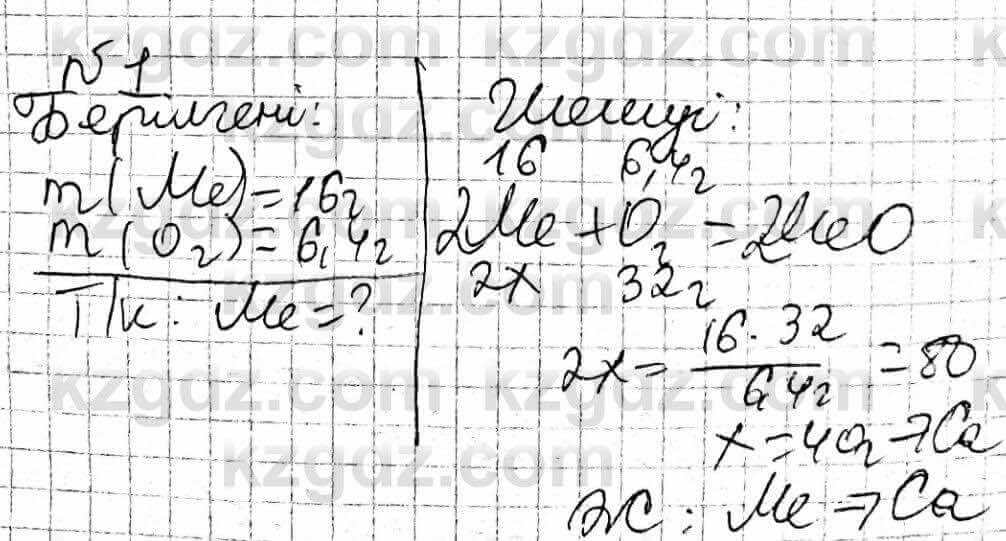 №1
Берилгені:
m(Me)=16г
m(O₂)=6,4г
Т/к: Me=?
Шешуі:
16 6,4г
2Me+O₂=2MeO
2x 32г
2x= 16·32 / 6,4г =80
x=40г→Ca
Ж: Me→Ca
kzgdz.com